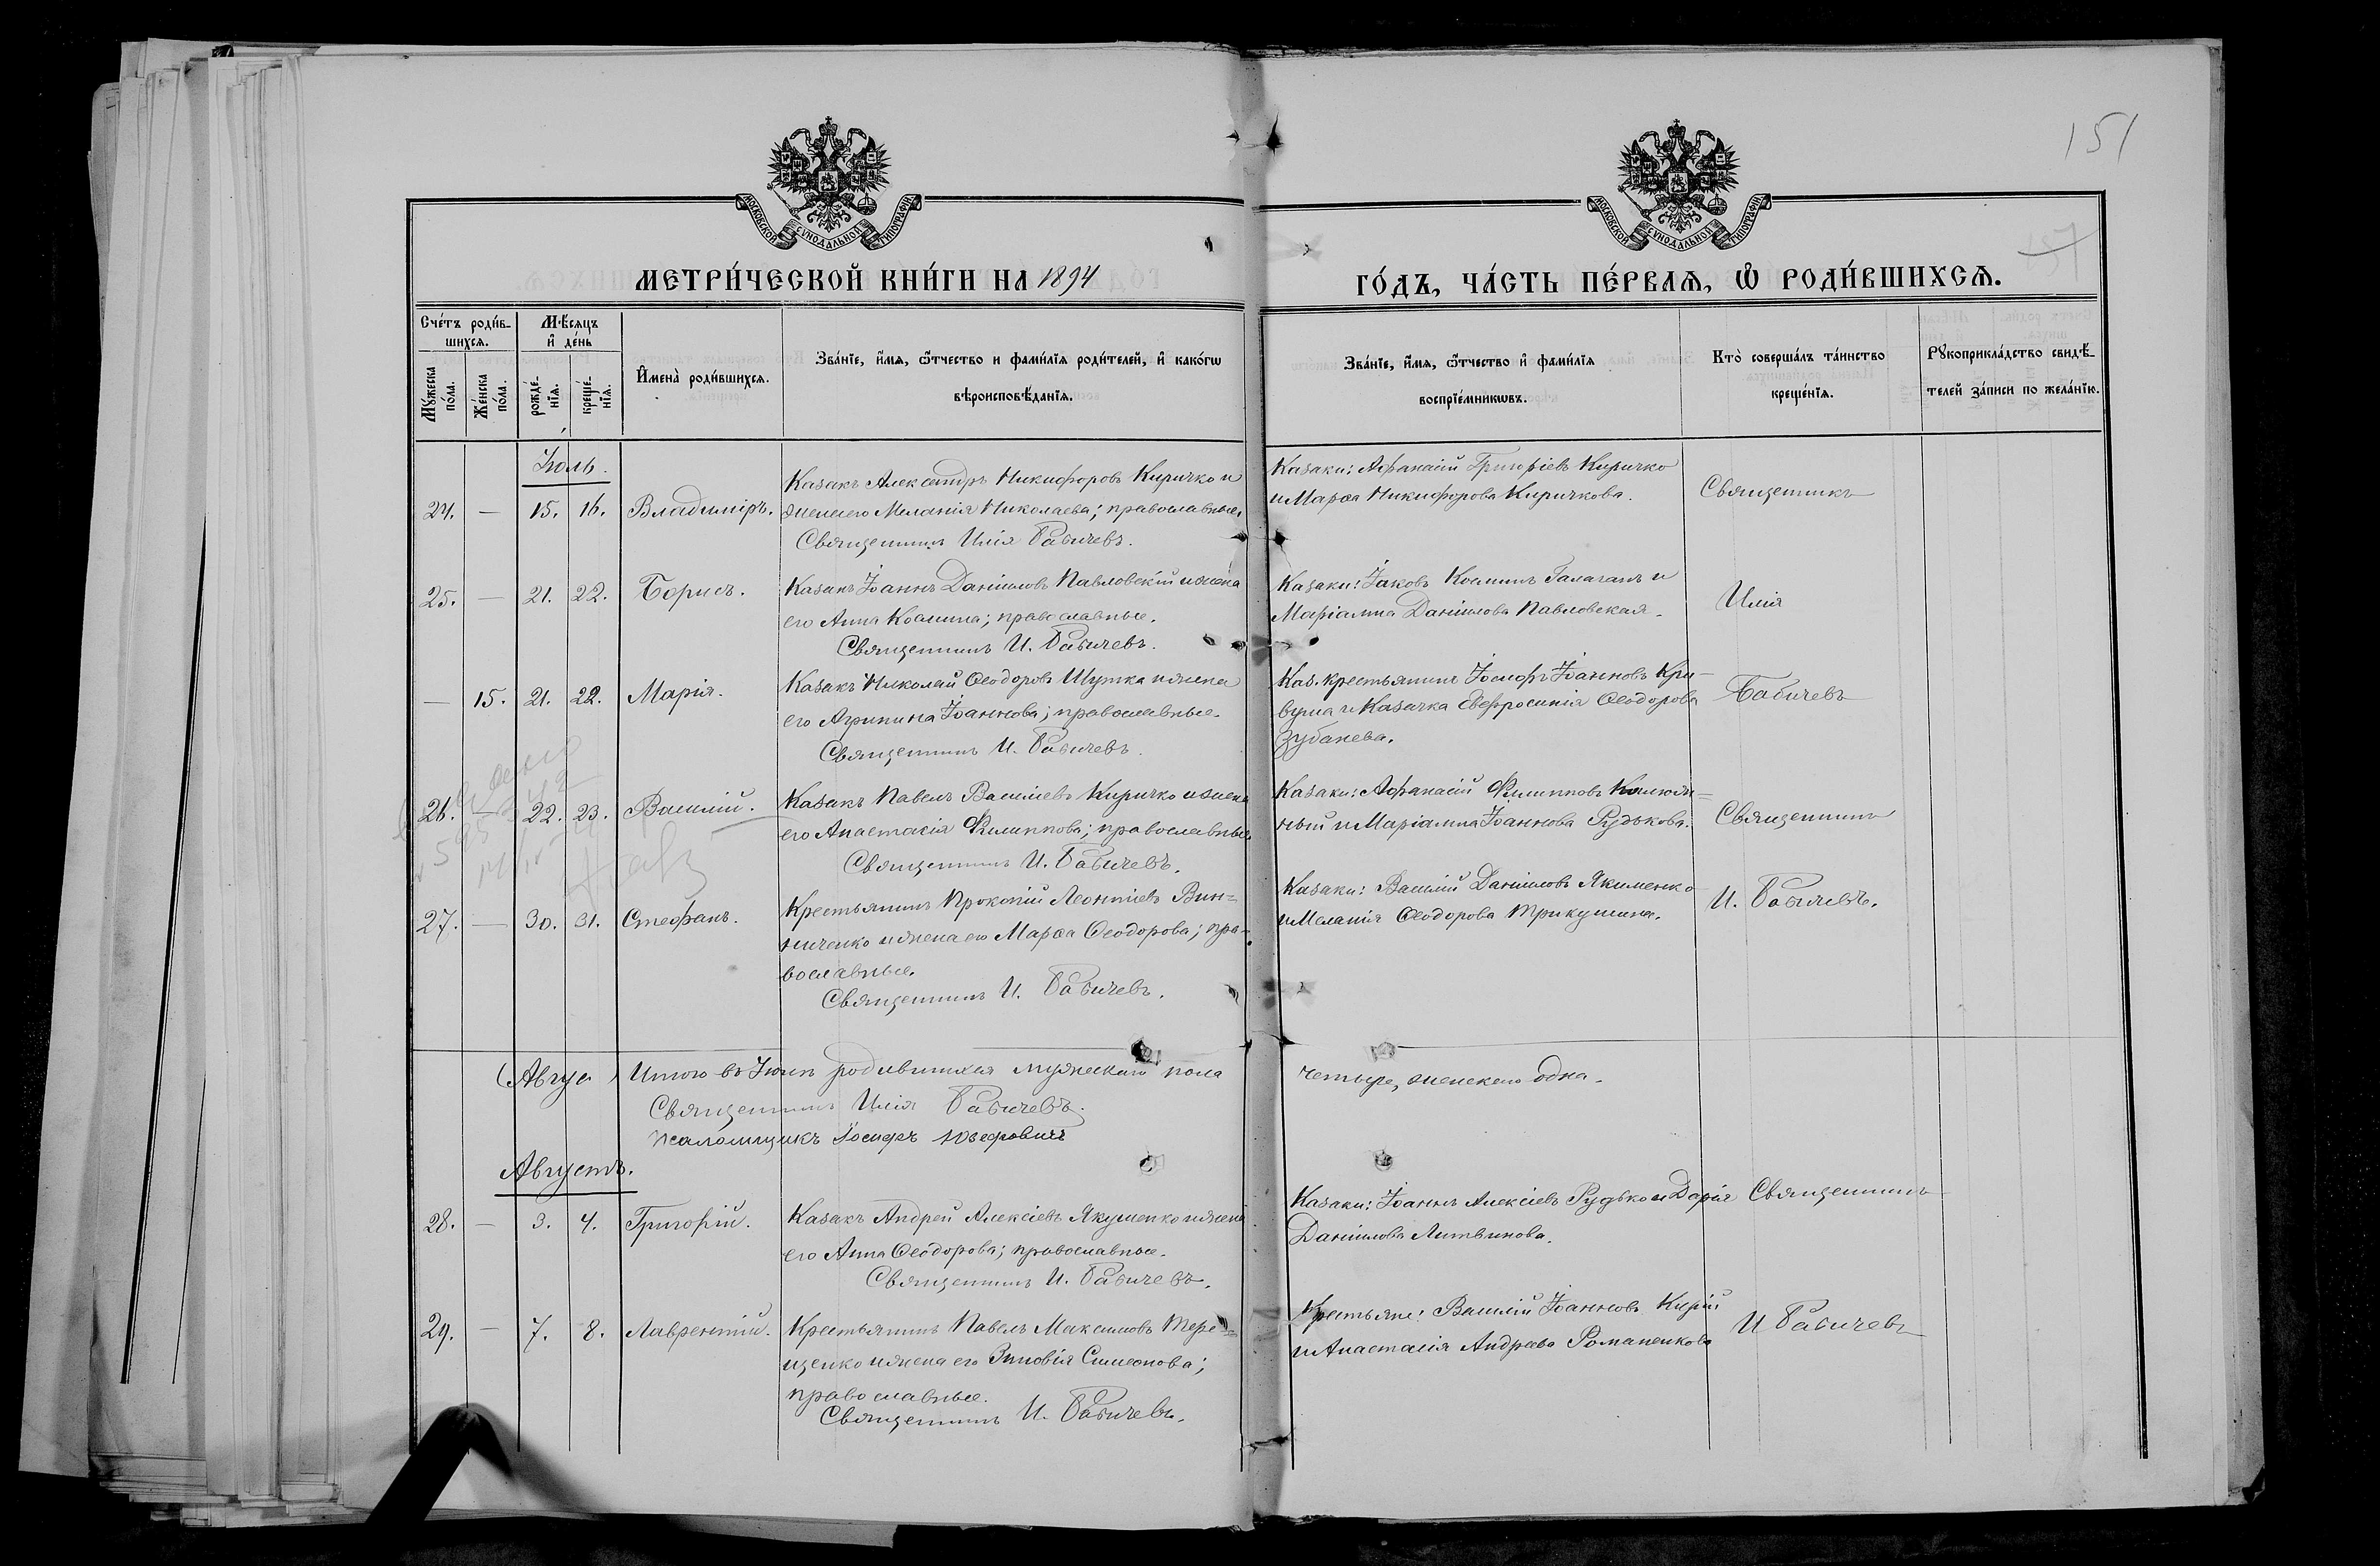 151
МОСКОВСКОЙ СѴНОДАЛЬНОЙ ТИПОГРАФІИ
МОСКОВСКОЙ СѴНОДАЛЬНОЙ ТИПОГРАФІИ
МЕТРИ́ЧЕСКОЙ КНИ́ГИ НА 1894
ГО́ДЪ, ЧА́СТЬ ПЕ́РВАѦ, Ѽ РОДИ́ВШИХСѦ.
Сче́тъ роди́в-
шихсѧ.
Мꙋ́жеска по́ла.
Же́нска по́ла.
Мѣ́сѧцъ
и҆ де́нь
рожде́-нїѧ.
креще́-нїѧ.
И҆мена̀ роди́вшихсѧ.
Зва́нїе, и҆́мѧ, ѻ҆́тчество и фами́лїѧ роди́телей, и҆ како́гѡ
вѣроисповѣ́данїѧ.
Зва́нїе, и҆́мѧ, ѻ҆́тчество и҆ фами́лїѧ
воспрїе́мникѡвъ.
Кто̀ соверша́лъ та́инство
креще́нїѧ.
Рꙋкоприкла́дство свидѣ́-
телей за́писи по жела́нїю.
Іюль.
24. — 15. 16. Владиміръ.
Казакъ Александръ Никифоровъ Киричко и
жена его Меланія Николаева; православные.
Священникъ Илія Бабичевъ.
Казаки: Афанасій Григоріевъ Киричко
и Марѳа Никифорова Киричкова.
Священникъ
25. — 21. 22. Борисъ.
Казакъ Іоаннъ Даніиловъ Павловскій и жена
его Анна Космина; православные.
Священникъ И. Бабичевъ.
Казаки: Іаковъ Косминъ Галаганъ и
Маріамна Даніилова Павловская.
Илія
— 15. 21. 22. Марія.
Казакъ Николай Ѳеодоровъ Шутка и жена
его Агрипина Іоаннова; православные.
Священникъ И. Бабичевъ.
Каз. крестьянинъ Іосифъ Іоанновъ Кри-
вуша и Казачка Евфросинія Ѳеодорова
Зубанева.
Бабичевъ
26. — 22. 23. Василій.
Казакъ Павелъ Василіевъ Киричко и жена
его Анастасія Филиппова; православные
Священникъ И. Бабичевъ.
Казаки: Афанасій Филипповъ
ный и Маріамна Іоаннова Рудькова.
Священникъ
27. — 30. 31. Стефанъ.
Крестьянинъ Прокопій Леонтіевъ Вин-
ниченко и жена его Марѳа Ѳеодорова; пра-
вославные.
Священникъ И. Бабичевъ.
Казаки: Василій Даніиловъ Якименко
и Меланія Ѳеодорова Трикушина.
И. Бабичевъ.
(Авгус) Итого въ Іюлѣ родившихся мужескаго пола
четыре, женскаго одна.
Священникъ Илія Бабичевъ.
Псаломщикъ Іосифъ Юзефовичъ
Августъ.
28. — 3. 4. Григорій.
Казакъ Андрей Алексіевъ Якушенко и жена
его Анна Ѳеодорова; православные.
Священникъ И. Бабичевъ.
Казаки: Іоаннъ Алексіевъ Рудько и Дарія
Даніилова Литвинова.
Священникъ
29. — 7. 8. Лаврентій.
Крестьянинъ Павелъ Максимовъ Тере-
щенко и жена его Зиновія Симеонова;
православные.
Священникъ И. Бабичевъ.
Крестьяне: Василій Іоанновъ Кирій
и Анастасія Андреева Романенкова
И Бабичевъ